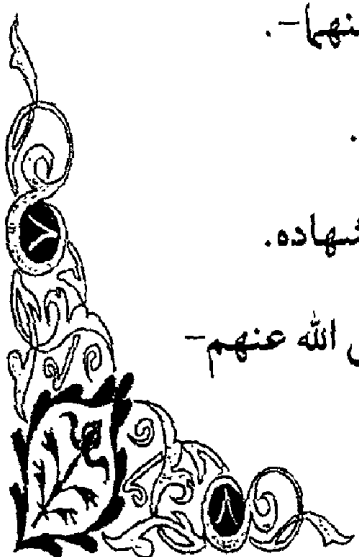 عنهما-.
.
شهاده.
الله عنهم-